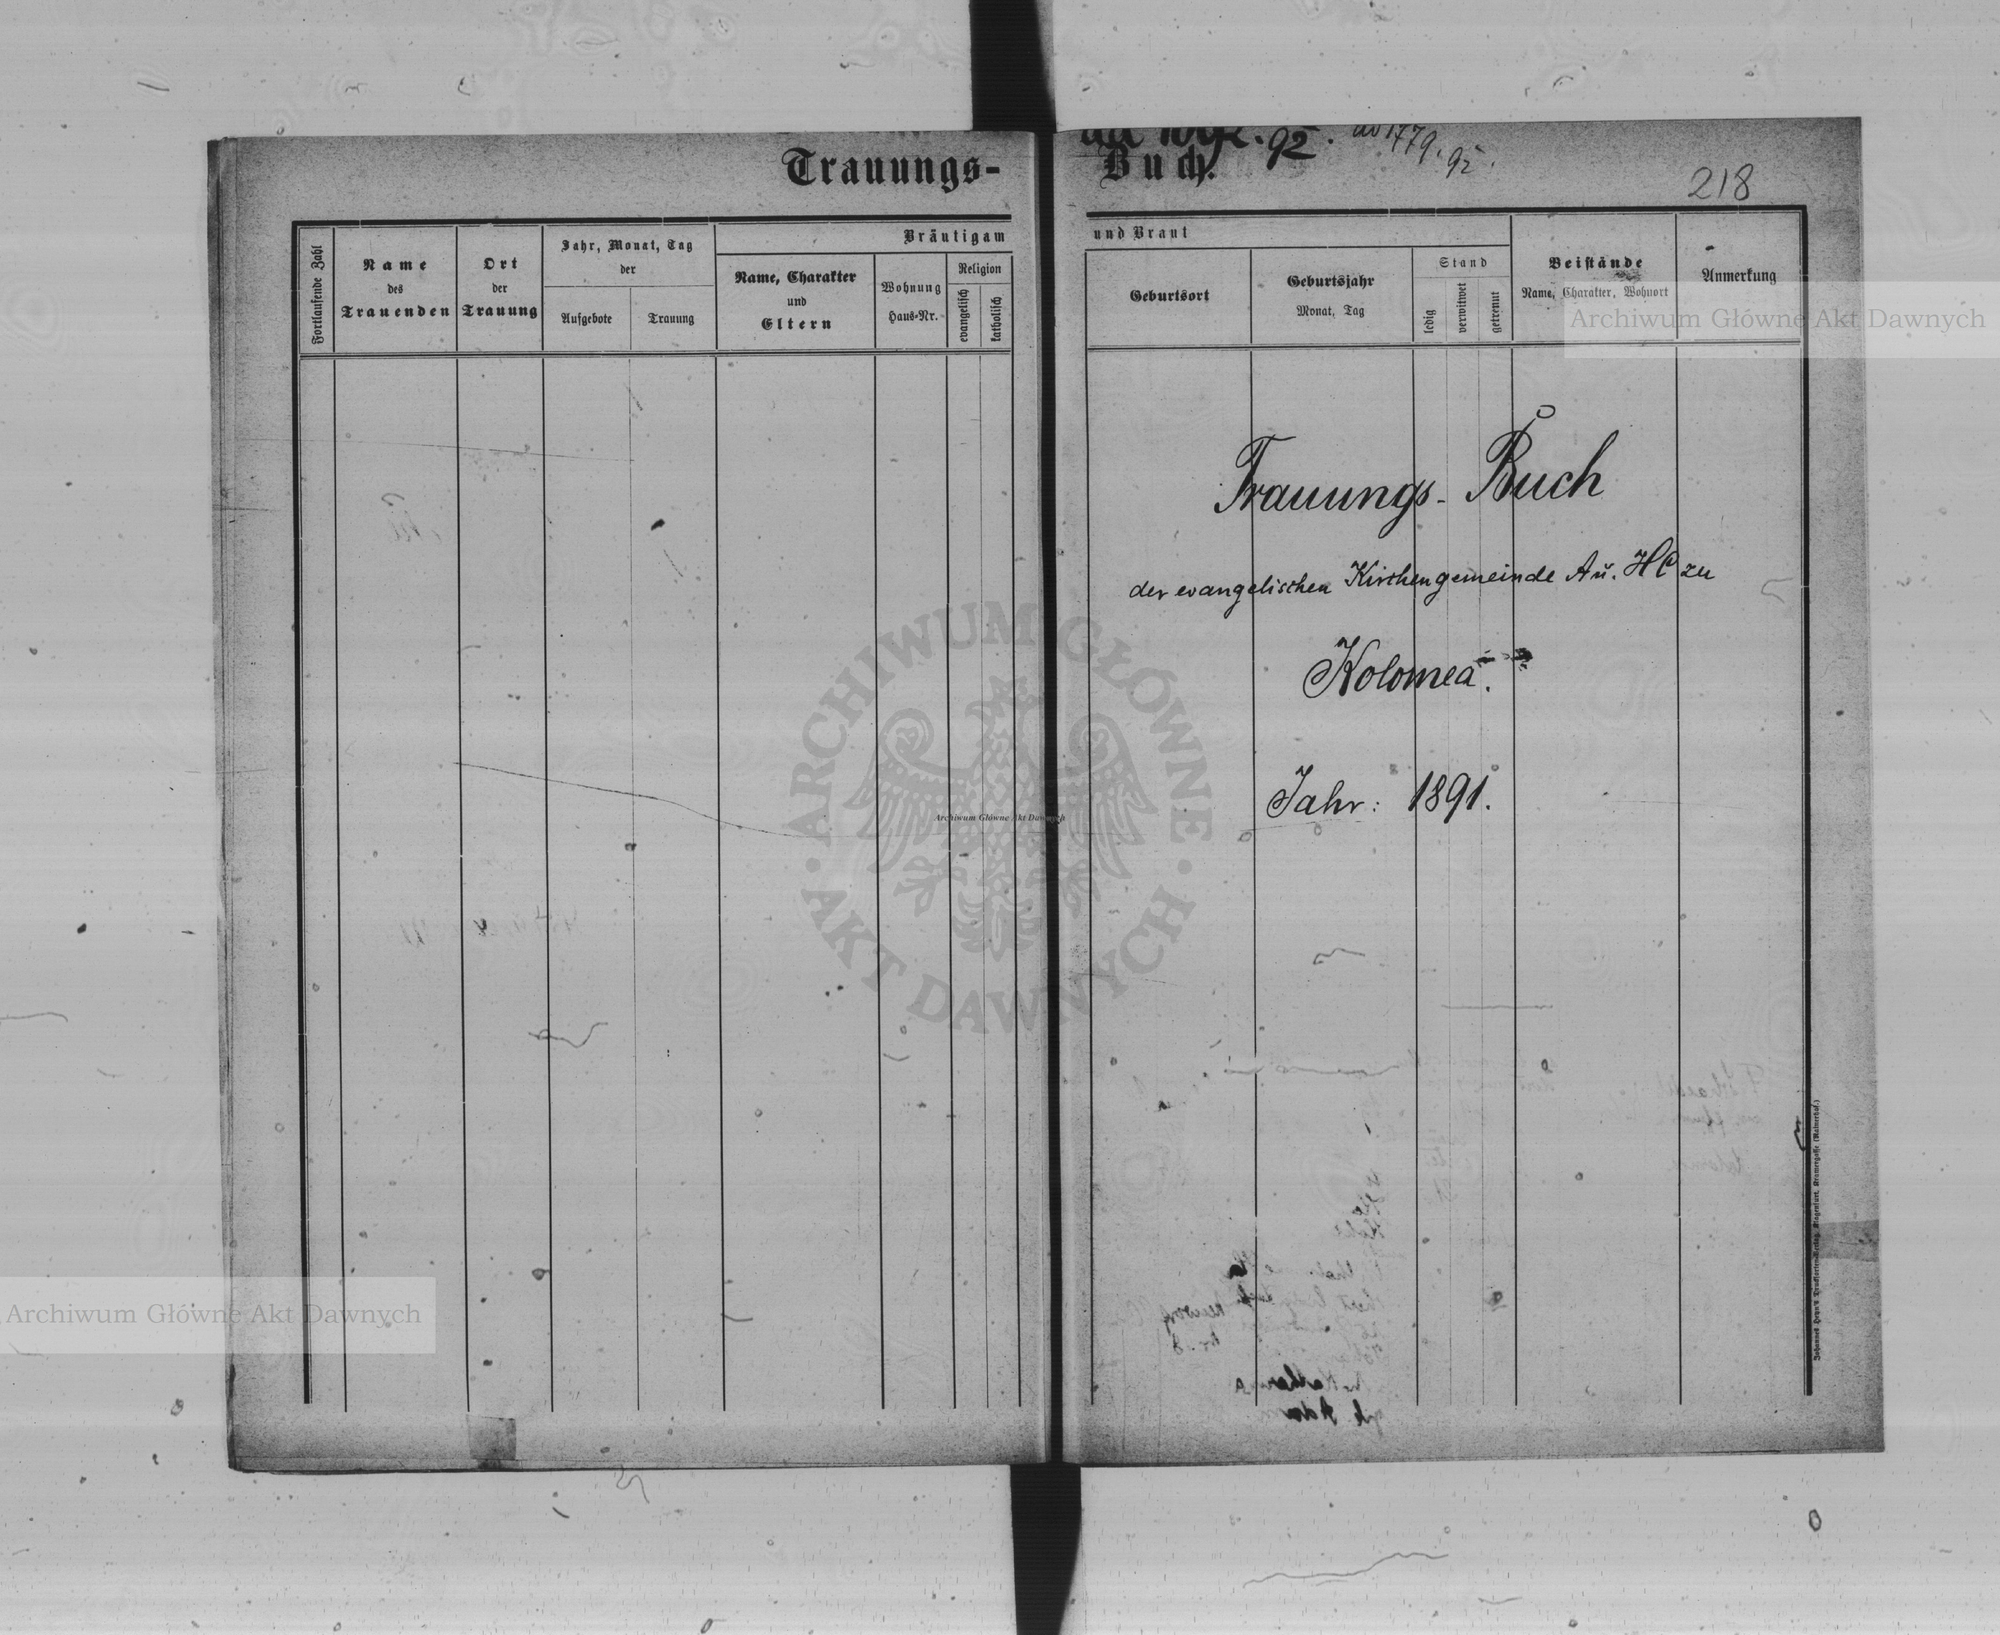 Trauungs-
Fortlaufende Zahl
Name
des
Trauenden
Ort
der
Trauung
Jahr, Monat, Tag
der
Aufgebote
Trauung
Bräutigam
Name, Charakter
und
Eltern
Wohnung
Haus-Nr.
Religion
evangelisch
katholisch
92.
1779. 92.
Buch.
218
und Braut
Geburtsort
Geburtsjahr
Monat, Tag
Stand
ledig
verwitwet
getrennt
Beistände
Name, Charakter, Wohnort
Anmerkung
Trauungs-Buch
der evangelischen Kirchengemeinde A u. HC zu
Kolomea.
Jahr: 1891.
Archiwum Główne Akt Dawnych
Archiwum Główne Akt Dawnych
Archiwum Główne Akt Dawnych
ARCHIWUM GŁÓWNE
AKT DAWNYCH